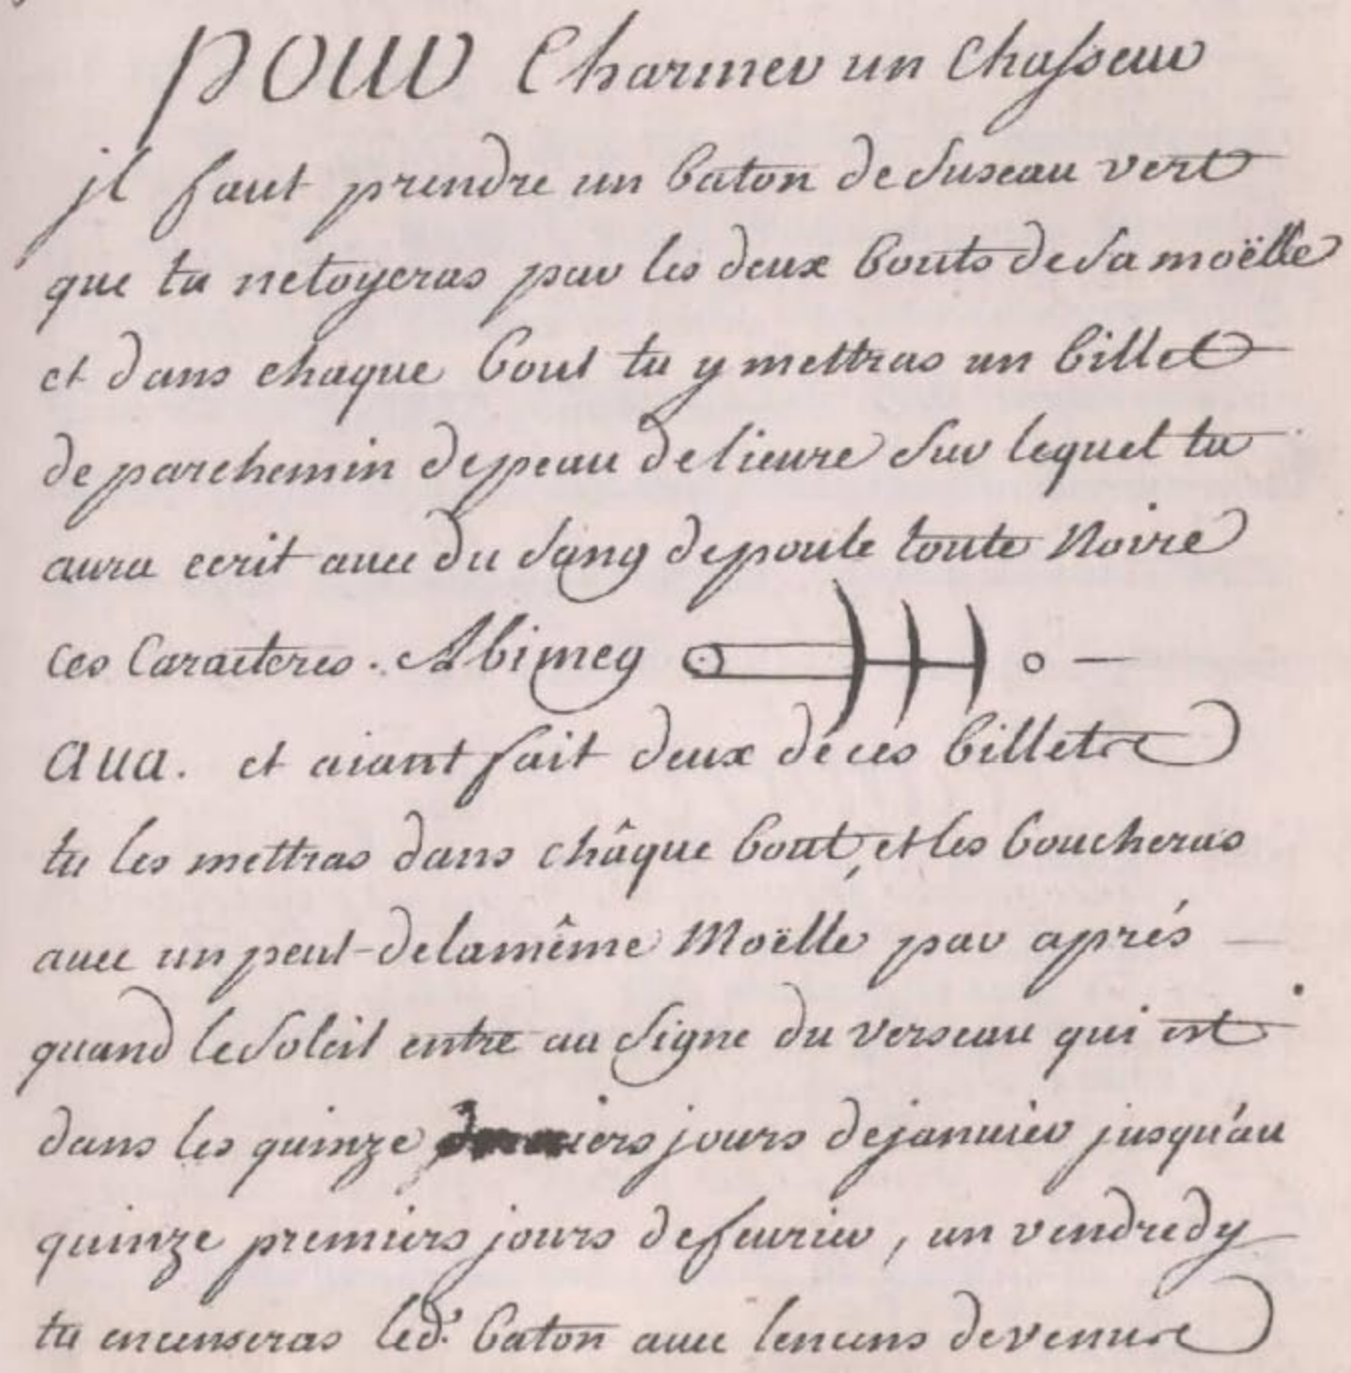 pour Charmer un Chasseur
jl faut prendre un baton de suseau vert
que tu netoyeras par les deux bouts de sa moëlle
et dans chaque bout tu y mettras un billet
de parchemin de peau de lieure sur lequel tu
aura ecrit auec du sang de poule toute Noire
ces Caracteres. Abimeg o —
aua. et aiant fait deux de ces billets
tu les mettras dans châque bout, et les boucheras
auec un peut de la même Moëlle par aprés —
quand le soleil entre au signe du verseau qui est
dans les quinze derniers jours de januier jusqu'au
quinze premiers jours de feurier, un vendredy
tu encenseras led. baton auec lencens de venus